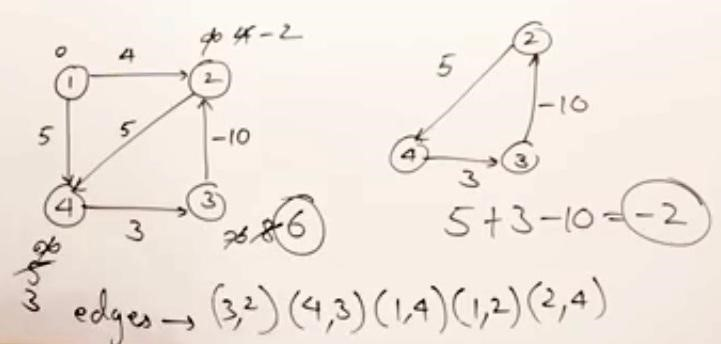 0 4 ∞ 4 -2
1 2
5 5 -10
4 3
3 ∞ 8 6
∞
5
3
2
5
-10
4 3
3
5+3-10=-2
edges → (3,2) (4,3) (1,4) (1,2) (2,4)